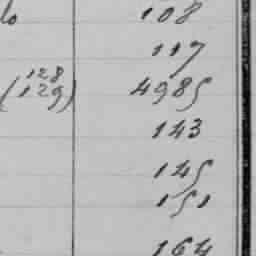 108
117
128
(129) 4985
143
145
151
164